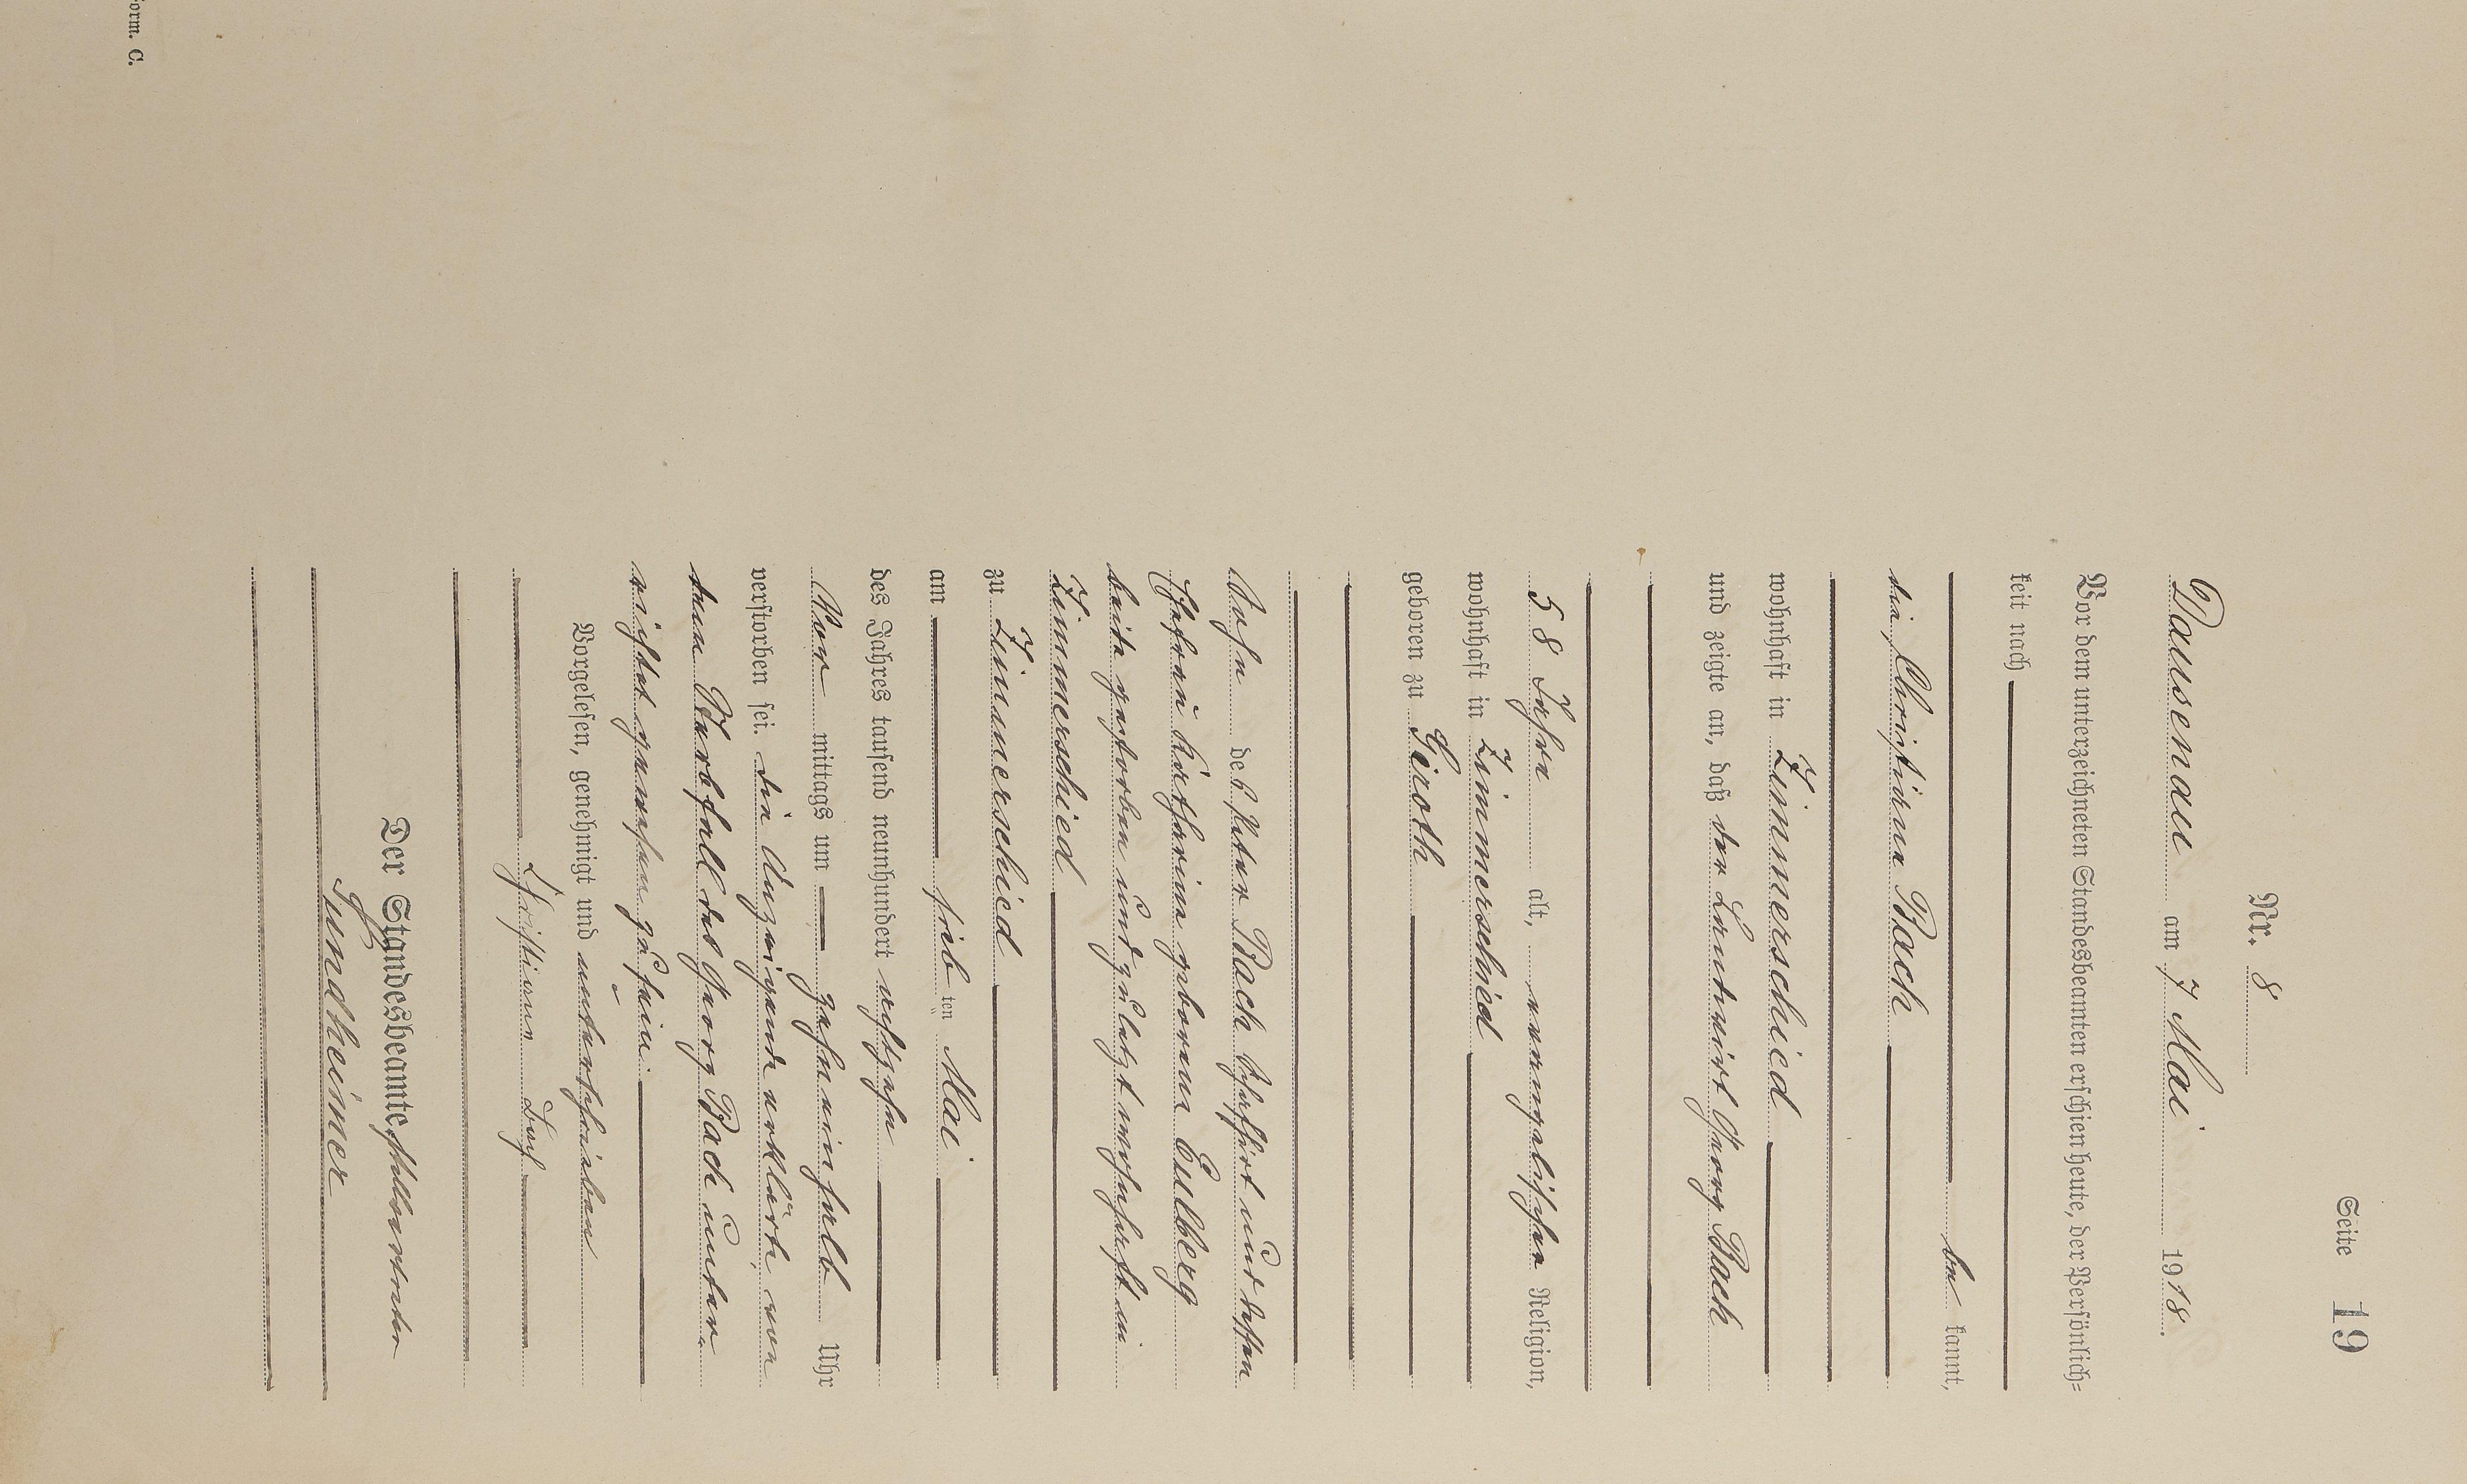 Seite 19
Nr. 8
Dausenau am 7 Mai 1918.
Vor dem unterzeichneten Standesbeamten erschien heute, der Persönlich=
keit nach
be kannt,
die Christiane Bach
wohnhaft in Zimmerschied
und zeigte an, daß der Landwirt Georg Bach
58 Jahre alt, evangelischer Religion,
wohnhaft in Zimmerschied
geboren zu Giroth
Sohn des Peter Bach und dessen
Ehefrau Katharina geborene Eulberg
beide gestorben und zuletzt wohnhaft in
Zimmerschied
zu Zimmerschied
am sieb ten Mai
des Jahres tausend neunhundert achtzehn
Vor mittags um zehneinhalb Uhr
verstorben sei. Die Anzeigende erklärte, von
dem Sterbfall des Georg Bach unter
richtet gewesen zu sein.
Vorgelesen, genehmigt und unterschrieben
Christiane Bach
Der Standesbeamte, Stellvertreter
Gundheimer
Form. C.